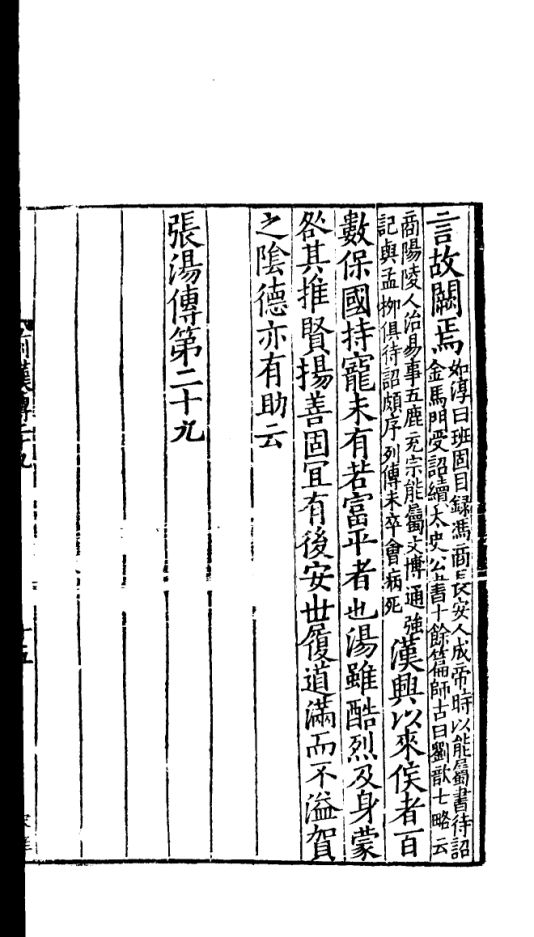 言故闕焉如淳曰班固目録馮商長安人成帝時以能屬書待詔金馬門受詔續太史公書十餘篇師古曰劉歆七略云
商陽陵人治易事五鹿充宗能屬文博通強記與孟柳俱待詔頗序列傳未卒會病死漢興以來侯者百
數保國持寵未有若富平者也湯雖酷烈及身蒙
咎其推賢揚善固冝有後安世履道滿而不溢賀
之隂德亦有助云
張湯傳第二十九
十五